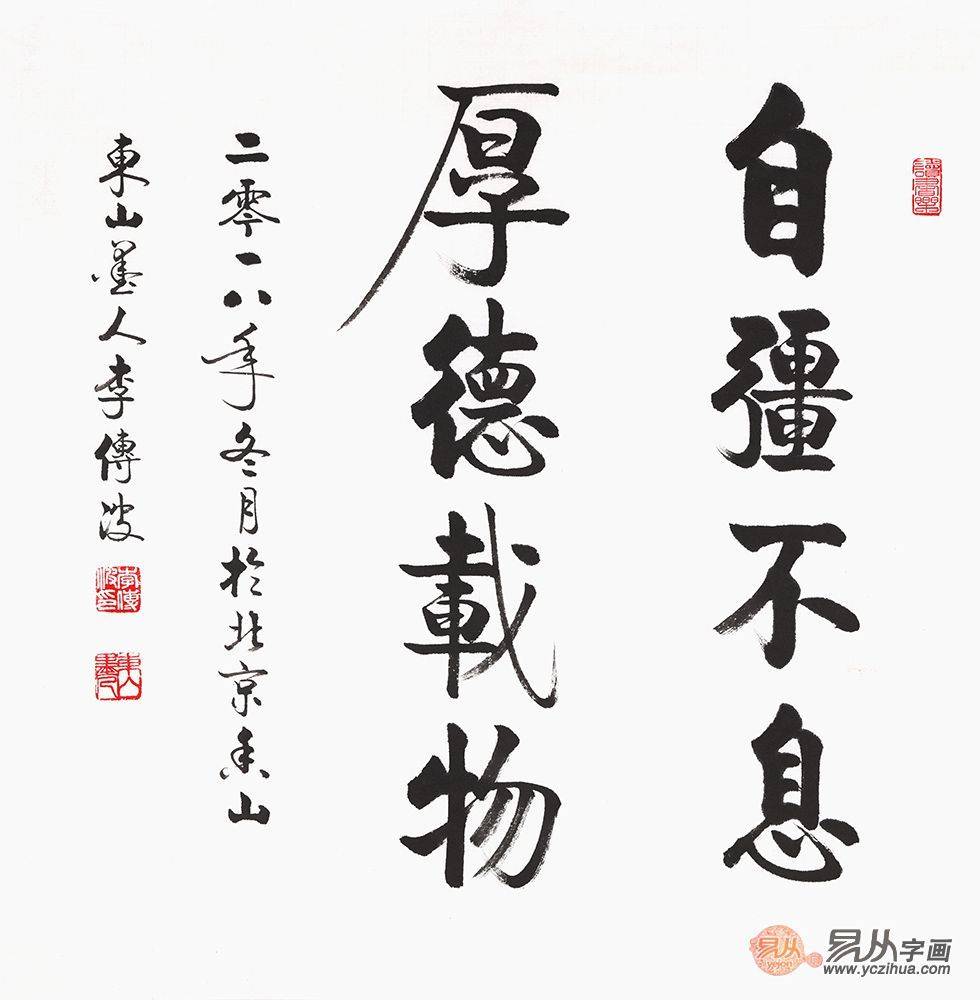 自彊不息
厚德載物
二零一八年冬月於北京香山
東山墨人李傳波
易从字画
www.yczihua.com